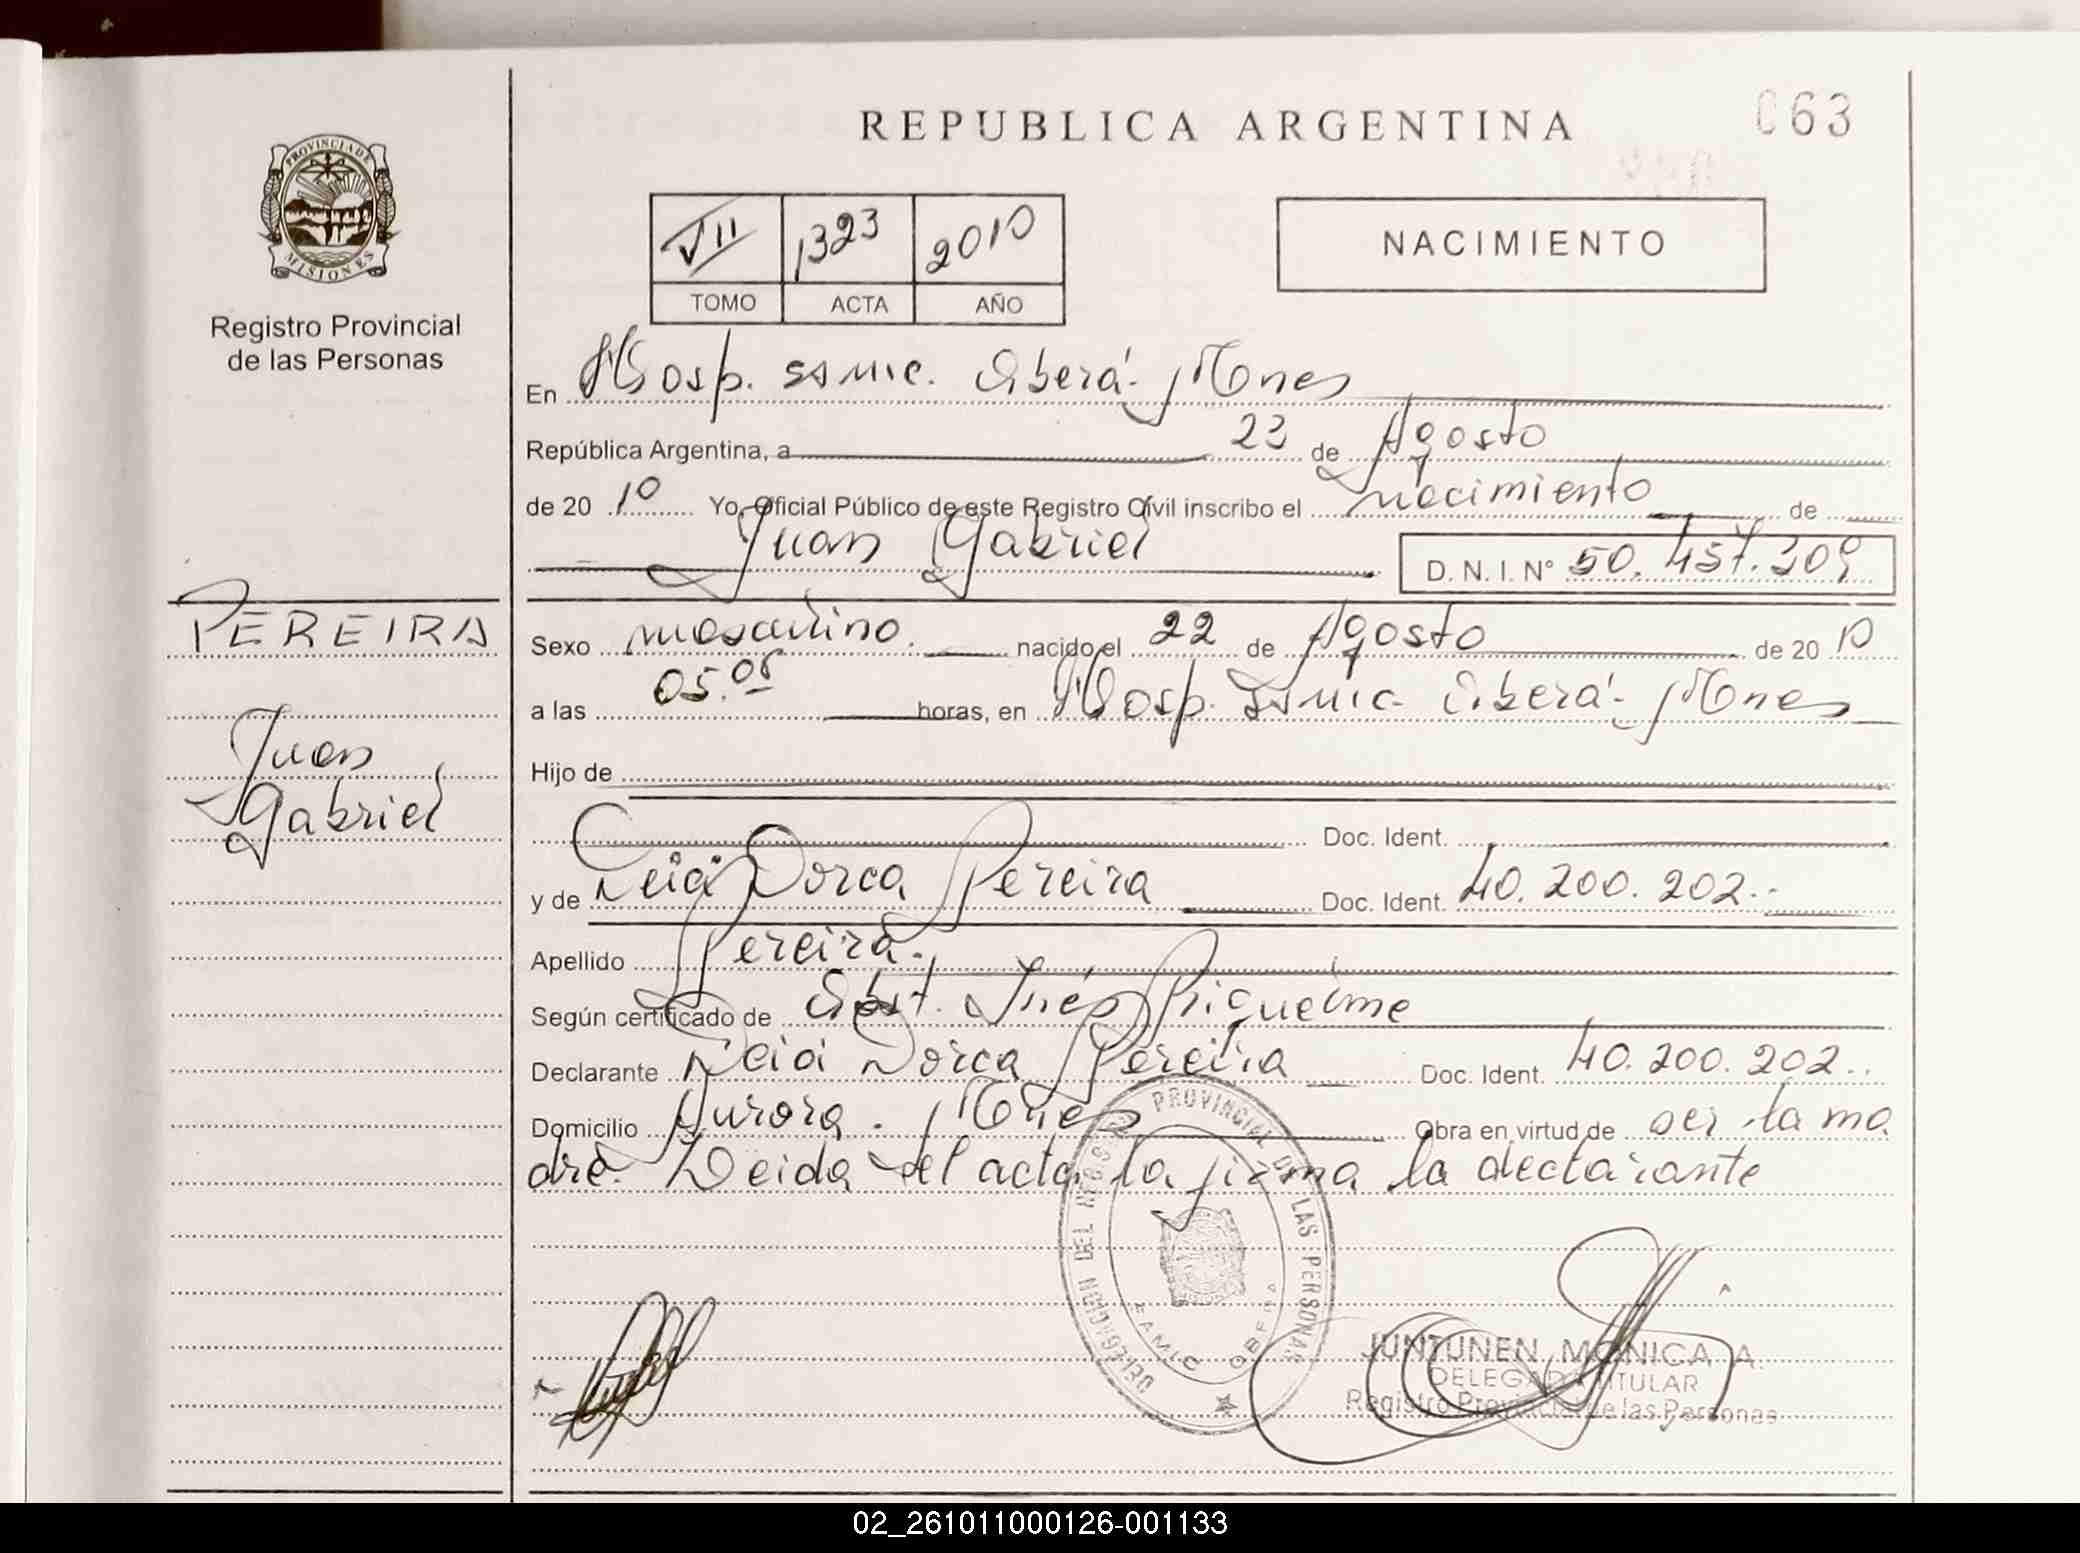 REPUBLICA ARGENTINA
063
PROVINCIA DE
MISIONES
Registro Provincial
de las Personas
VII 1323 2010
TOMO ACTA AÑO
NACIMIENTO
En Hosp. samic. Oberá. Mones
República Argentina, a 23 de Agosto
de 20 10 Yo, Oficial Público de este Registro Civil inscribo el nacimiento de
Juan Gabriel D. N. I. N° 50.457.309
PEREIRA
Juan
Gabriel
Sexo masculino. nacido el 22 de Agosto de 20 10
a las 05.05 horas, en Hosp. samic. Oberá. Mones
Hijo de
Doc. Ident.
y de Dorca Pereira Doc. Ident. 40.200.202.-
Apellido Pereira.
Según certificado de Obst. Inés Riquelme
Declarante Dorca Pereira Doc. Ident. 40.200.202..
Domicilio Aurora. Mones Obra en virtud de ser la ma
dre. Leida el acta la firma la declarante
DELEGACION DEL REG. PROVINCIAL DE LAS PERSONAS
SAMIC OBERA
JUNTUNEN MONICA A
DELEGADA TITULAR
Registro Provincial de las Personas
02_261011000126-001133